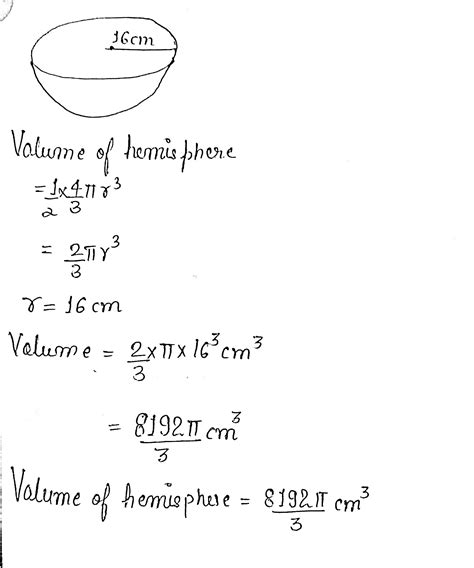 16cm
Volume of hemisphere
= 1/2 × 4/3 πr³
= 2/3 πr³
r = 16 cm
Volume = 2/3 × π × 16³ cm³
= 8192π/3 cm³
Volume of hemisphere = 8192π/3 cm³